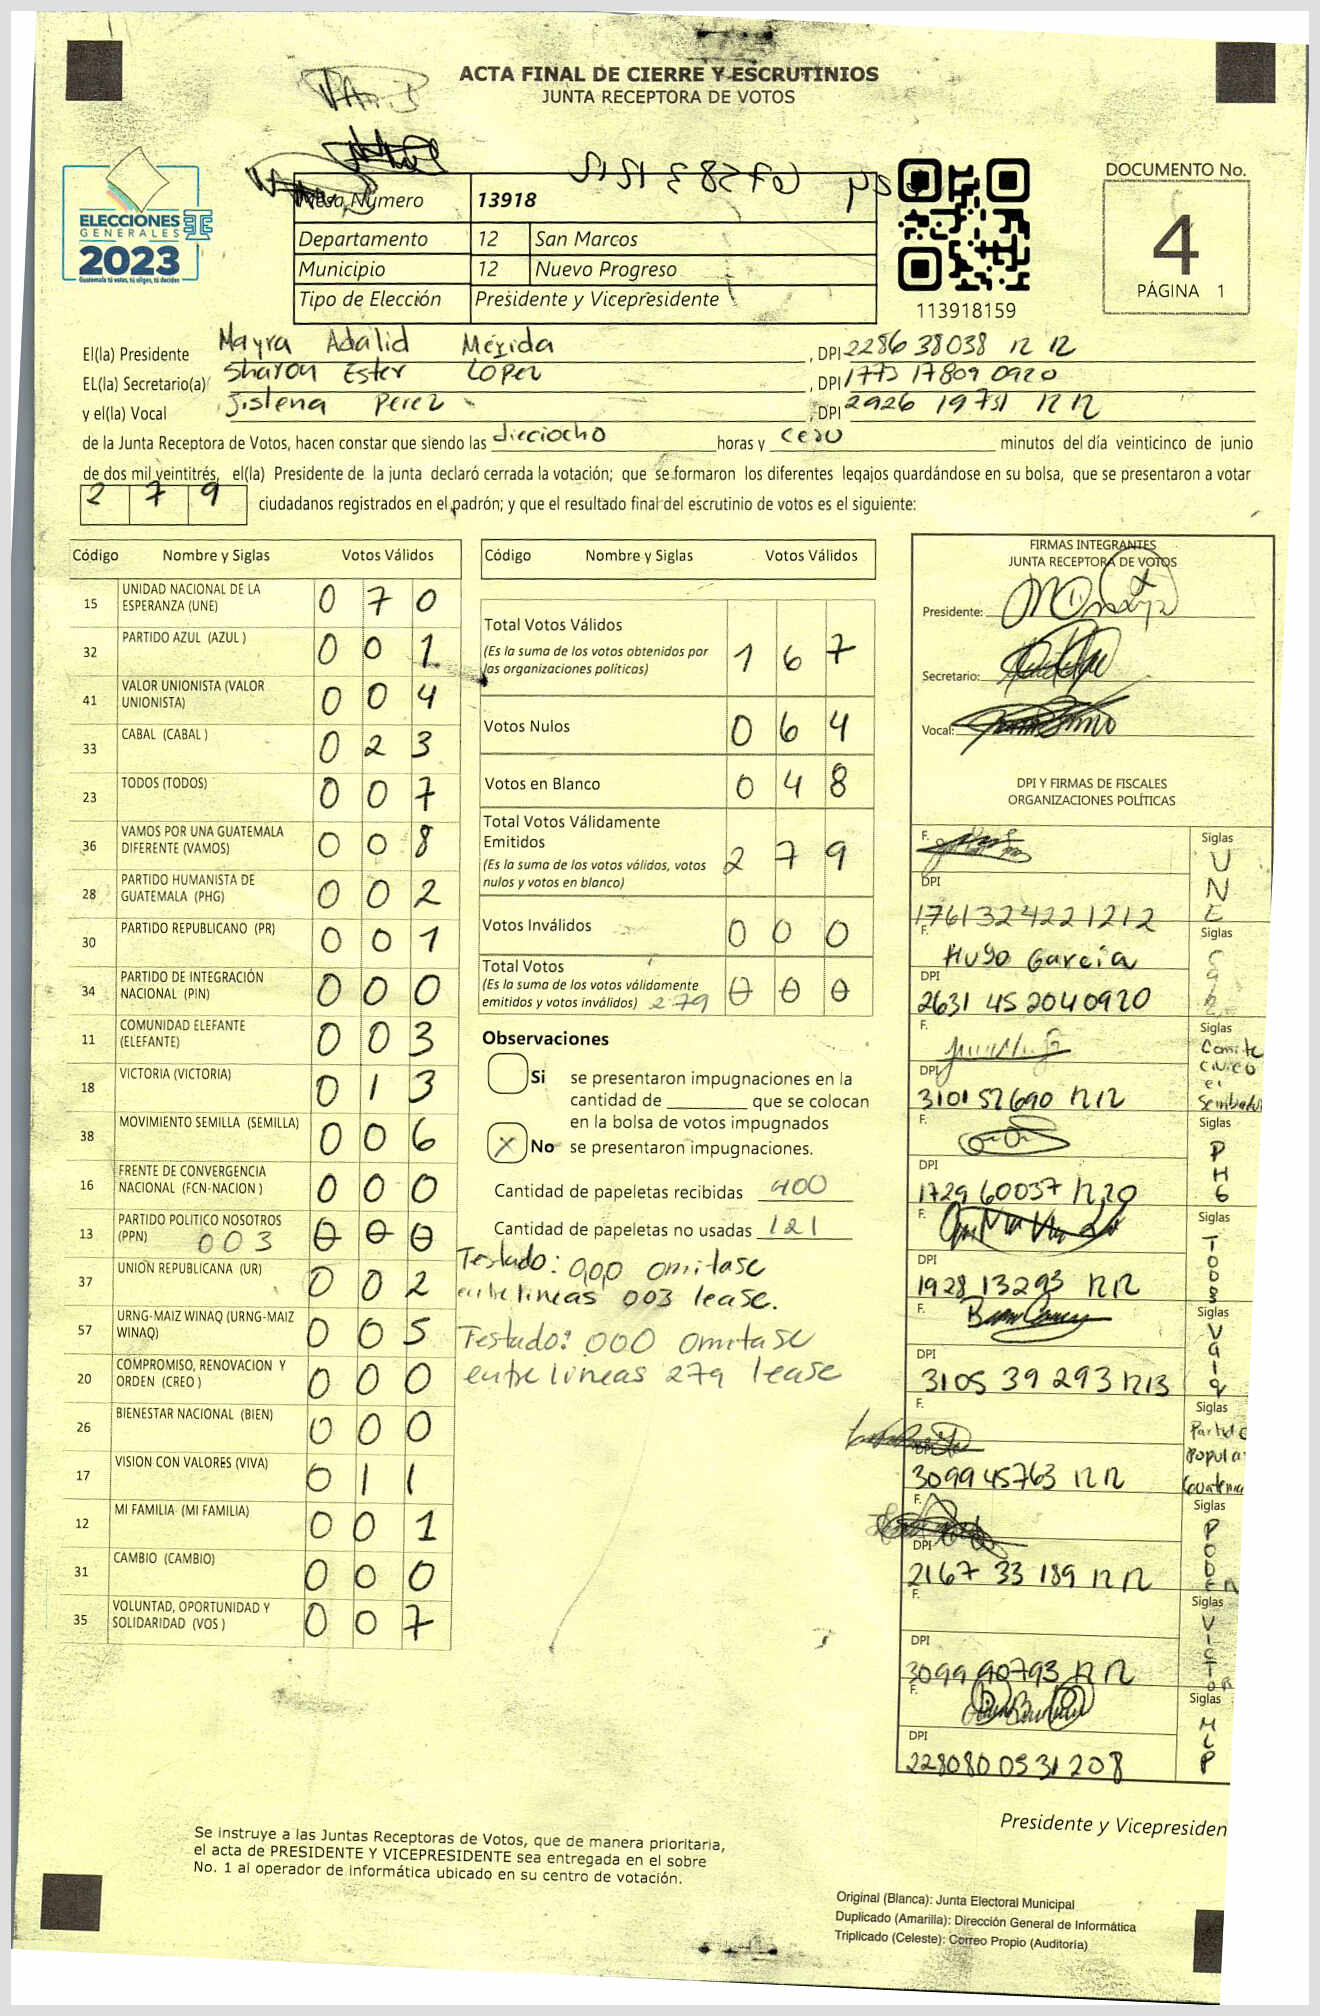 ACTA FINAL DE CIERRE Y ESCRUTINIOS
JUNTA RECEPTORA DE VOTOS
ELECCIONES
GENERALES
2023
Guatemala tú votas, tú eliges, tú decides
Mesa Número 13918
Departamento 12 San Marcos
Municipio 12 Nuevo Progreso
Tipo de Elección Presidente y Vicepresidente
113918159
DOCUMENTO No.
4
PÁGINA 1
El(la) Presidente Mayra Adalid Mérida , DPI 2286 38038 12 12
EL(la) Secretario(a) Sharon Ester López , DPI 1773 17809 0920
y el(la) Vocal Jislena Perez , DPI 2926 19731 12 12
de la Junta Receptora de Votos, hacen constar que siendo las dieciocho horas y cero minutos del día veinticinco de junio
de dos mil veintitrés, el(la) Presidente de la junta declaró cerrada la votación; que se formaron los diferentes legajos quardándose en su bolsa, que se presentaron a votar
2 7 9 ciudadanos registrados en el padrón; y que el resultado final del escrutinio de votos es el siguiente:
Código Nombre y Siglas Votos Válidos
15 UNIDAD NACIONAL DE LA ESPERANZA (UNE) 0 7 0
32 PARTIDO AZUL (AZUL ) 0 0 1
41 VALOR UNIONISTA (VALOR UNIONISTA) 0 0 4
33 CABAL (CABAL ) 0 2 3
23 TODOS (TODOS) 0 0 7
36 VAMOS POR UNA GUATEMALA DIFERENTE (VAMOS) 0 0 8
28 PARTIDO HUMANISTA DE GUATEMALA (PHG) 0 0 2
30 PARTIDO REPUBLICANO (PR) 0 0 1
34 PARTIDO DE INTEGRACIÓN NACIONAL (PIN) 0 0 0
11 COMUNIDAD ELEFANTE (ELEFANTE) 0 0 3
18 VICTORIA (VICTORIA) 0 1 3
38 MOVIMIENTO SEMILLA (SEMILLA) 0 0 6
16 FRENTE DE CONVERGENCIA NACIONAL (FCN-NACION ) 0 0 0
13 PARTIDO POLITICO NOSOTROS (PPN) 003 0 0 0
37 UNION REPUBLICANA (UR) 0 0 2
57 URNG-MAIZ WINAQ (URNG-MAIZ WINAQ) 0 0 5
20 COMPROMISO, RENOVACION Y ORDEN (CREO ) 0 0 0
26 BIENESTAR NACIONAL (BIEN) 0 0 0
17 VISION CON VALORES (VIVA) 0 1 1
12 MI FAMILIA (MI FAMILIA) 0 0 1
31 CAMBIO (CAMBIO) 0 0 0
35 VOLUNTAD, OPORTUNIDAD Y SOLIDARIDAD (VOS ) 0 0 7
Código Nombre y Siglas Votos Válidos
Total Votos Válidos
(Es la suma de los votos obtenidos por las organizaciones políticas) 1 6 7
Votos Nulos 0 6 4
Votos en Blanco 0 4 8
Total Votos Válidamente Emitidos
(Es la suma de los votos válidos, votos nulos y votos en blanco) 2 7 9
Votos Inválidos 0 0 0
Total Votos
(Es la suma de los votos válidamente emitidos y votos inválidos) 279 0 0 0
Observaciones
Si se presentaron impugnaciones en la
cantidad de ________ que se colocan
en la bolsa de votos impugnados
X No se presentaron impugnaciones.
Cantidad de papeletas recibidas 400
Cantidad de papeletas no usadas 121
Testado: 000 omitase
entre lineas 003 lease.
Testado: 000 omitase
entre lineas 279 lease
FIRMAS INTEGRANTES
JUNTA RECEPTORA DE VOTOS
Presidente:
Secretario:
Vocal:
DPI Y FIRMAS DE FISCALES
ORGANIZACIONES POLÍTICAS
F. Siglas UNE
DPI 1761324221212
F. Hugo García Siglas
DPI 2631 45 2040920
F. Siglas Comite Civico el Sembrador
DPI 3101 52690 1212
F. Siglas PHG
DPI 1729 60037 1220
F. Siglas TODOS
DPI 1928 13293 1212
F. Siglas
DPI 3105 39 293 1213
F. Siglas Partido Popular Guatema
DPI 3099 45763 1212
F. Siglas PODER
DPI 2167 33 189 1212
F. Siglas VICTOR
DPI 3099 90793 1212
F. Siglas MLP
DPI 2280800531208
Presidente y Vicepresiden
Se instruye a las Juntas Receptoras de Votos, que de manera prioritaria,
el acta de PRESIDENTE Y VICEPRESIDENTE sea entregada en el sobre
No. 1 al operador de informática ubicado en su centro de votación.
Original (Blanca): Junta Electoral Municipal
Duplicado (Amarilla): Dirección General de Informática
Triplicado (Celeste): Correo Propio (Auditoría)